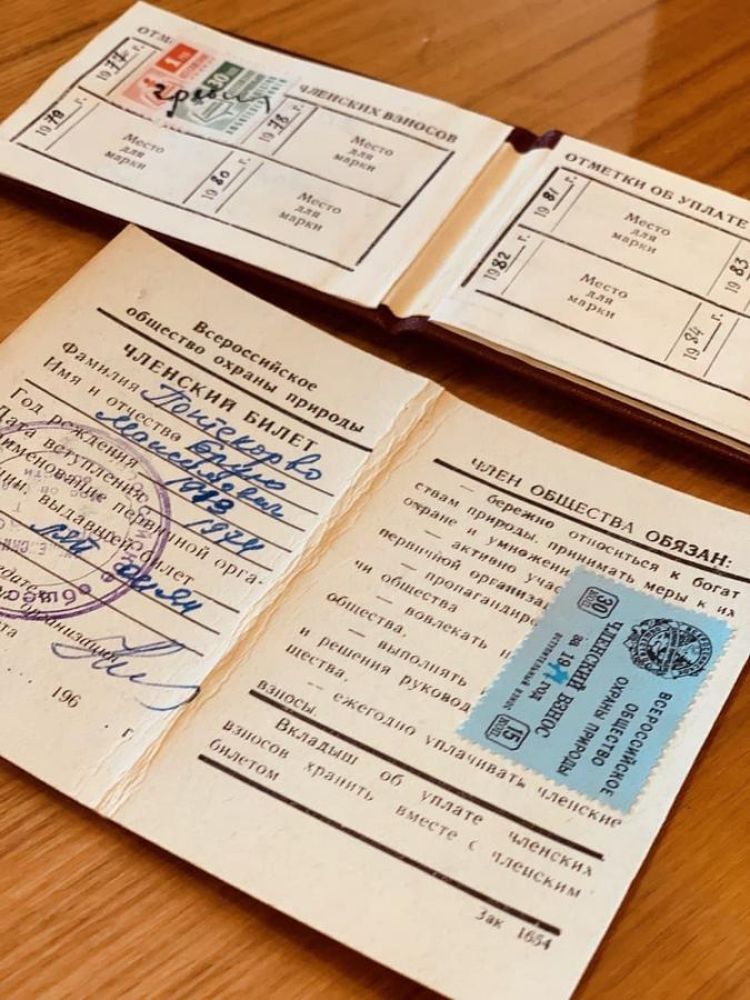 ОТМ
ЧЛЕНСКИХ ВЗНОСОВ
1977 г.
1 РУБ
30
1978 г.
Место
для
марки
1979 г.
Место
для
марки
1980 г.
Место
для
марки
ОТМЕТКИ ОБ УПЛАТЕ
1981 г.
Место
для
марки
1982 г.
Место
для
марки
1983
1984 г.
Всероссийское
общество охраны природы
ЧЛЕНСКИЙ БИЛЕТ
Фамилия Понтекорво
Имя и отчество Бруно
Максимович
Год рождения 1913
Дата вступления 1974
Наименование первичной орга-
ции, выдавшей билет
ЛЯП ОИЯИ
организации
196 г.
ЧЛЕН ОБЩЕСТВА ОБЯЗАН:
— бережно относиться к богат
ствам природы, принимать меры к их
охране и умножени
— активно учас
первичной организа
— пропагандир
чи общества
— вовлекать н
общества,
— выполнять
и решения руковод
щества.
— ежегодно уплачивать членские
взносы.
Вкладыш об уплате членских
взносов хранить вместе с членским
билетом
Зак 1654
ВСЕРОССИЙСКОЕ
ОБЩЕСТВО
ОХРАНЫ ПРИРОДЫ
30 КОП
ЧЛЕНСКИЙ ВЗНОС
за 19 год
ВСТУПИТЕЛЬНЫЙ ВЗНОС
15 КОП